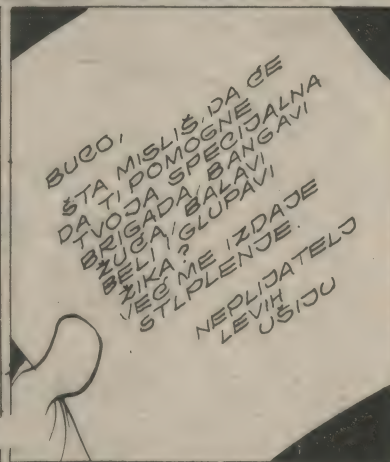 BUCO,
ŠTA MISLIŠ, DA ĆE
DA TI POMOGNE
TVOJA SPECIJALNA
BRIGADA, BANGAVI
ŽUĆA, BALAVI
BELI, GLUPAVI
ŽIKA?
VEĆ ME IZDAJE
STLPLENJE.
NEPLIJATELJ
LEVIH
UŠIJU